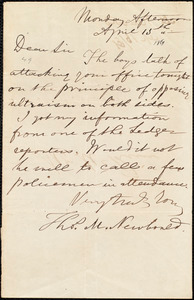 Monday Afternoon
April 15th
Dear Sir
The boys talk of
attacking your office tonight
on the principle of opposing
ultraism on both sides.
I got my information
from one of the Ledger
reporters. Would it not
be well to call a few
policemen in attendance.
Very truly Yours
Ths. M. Newbould.